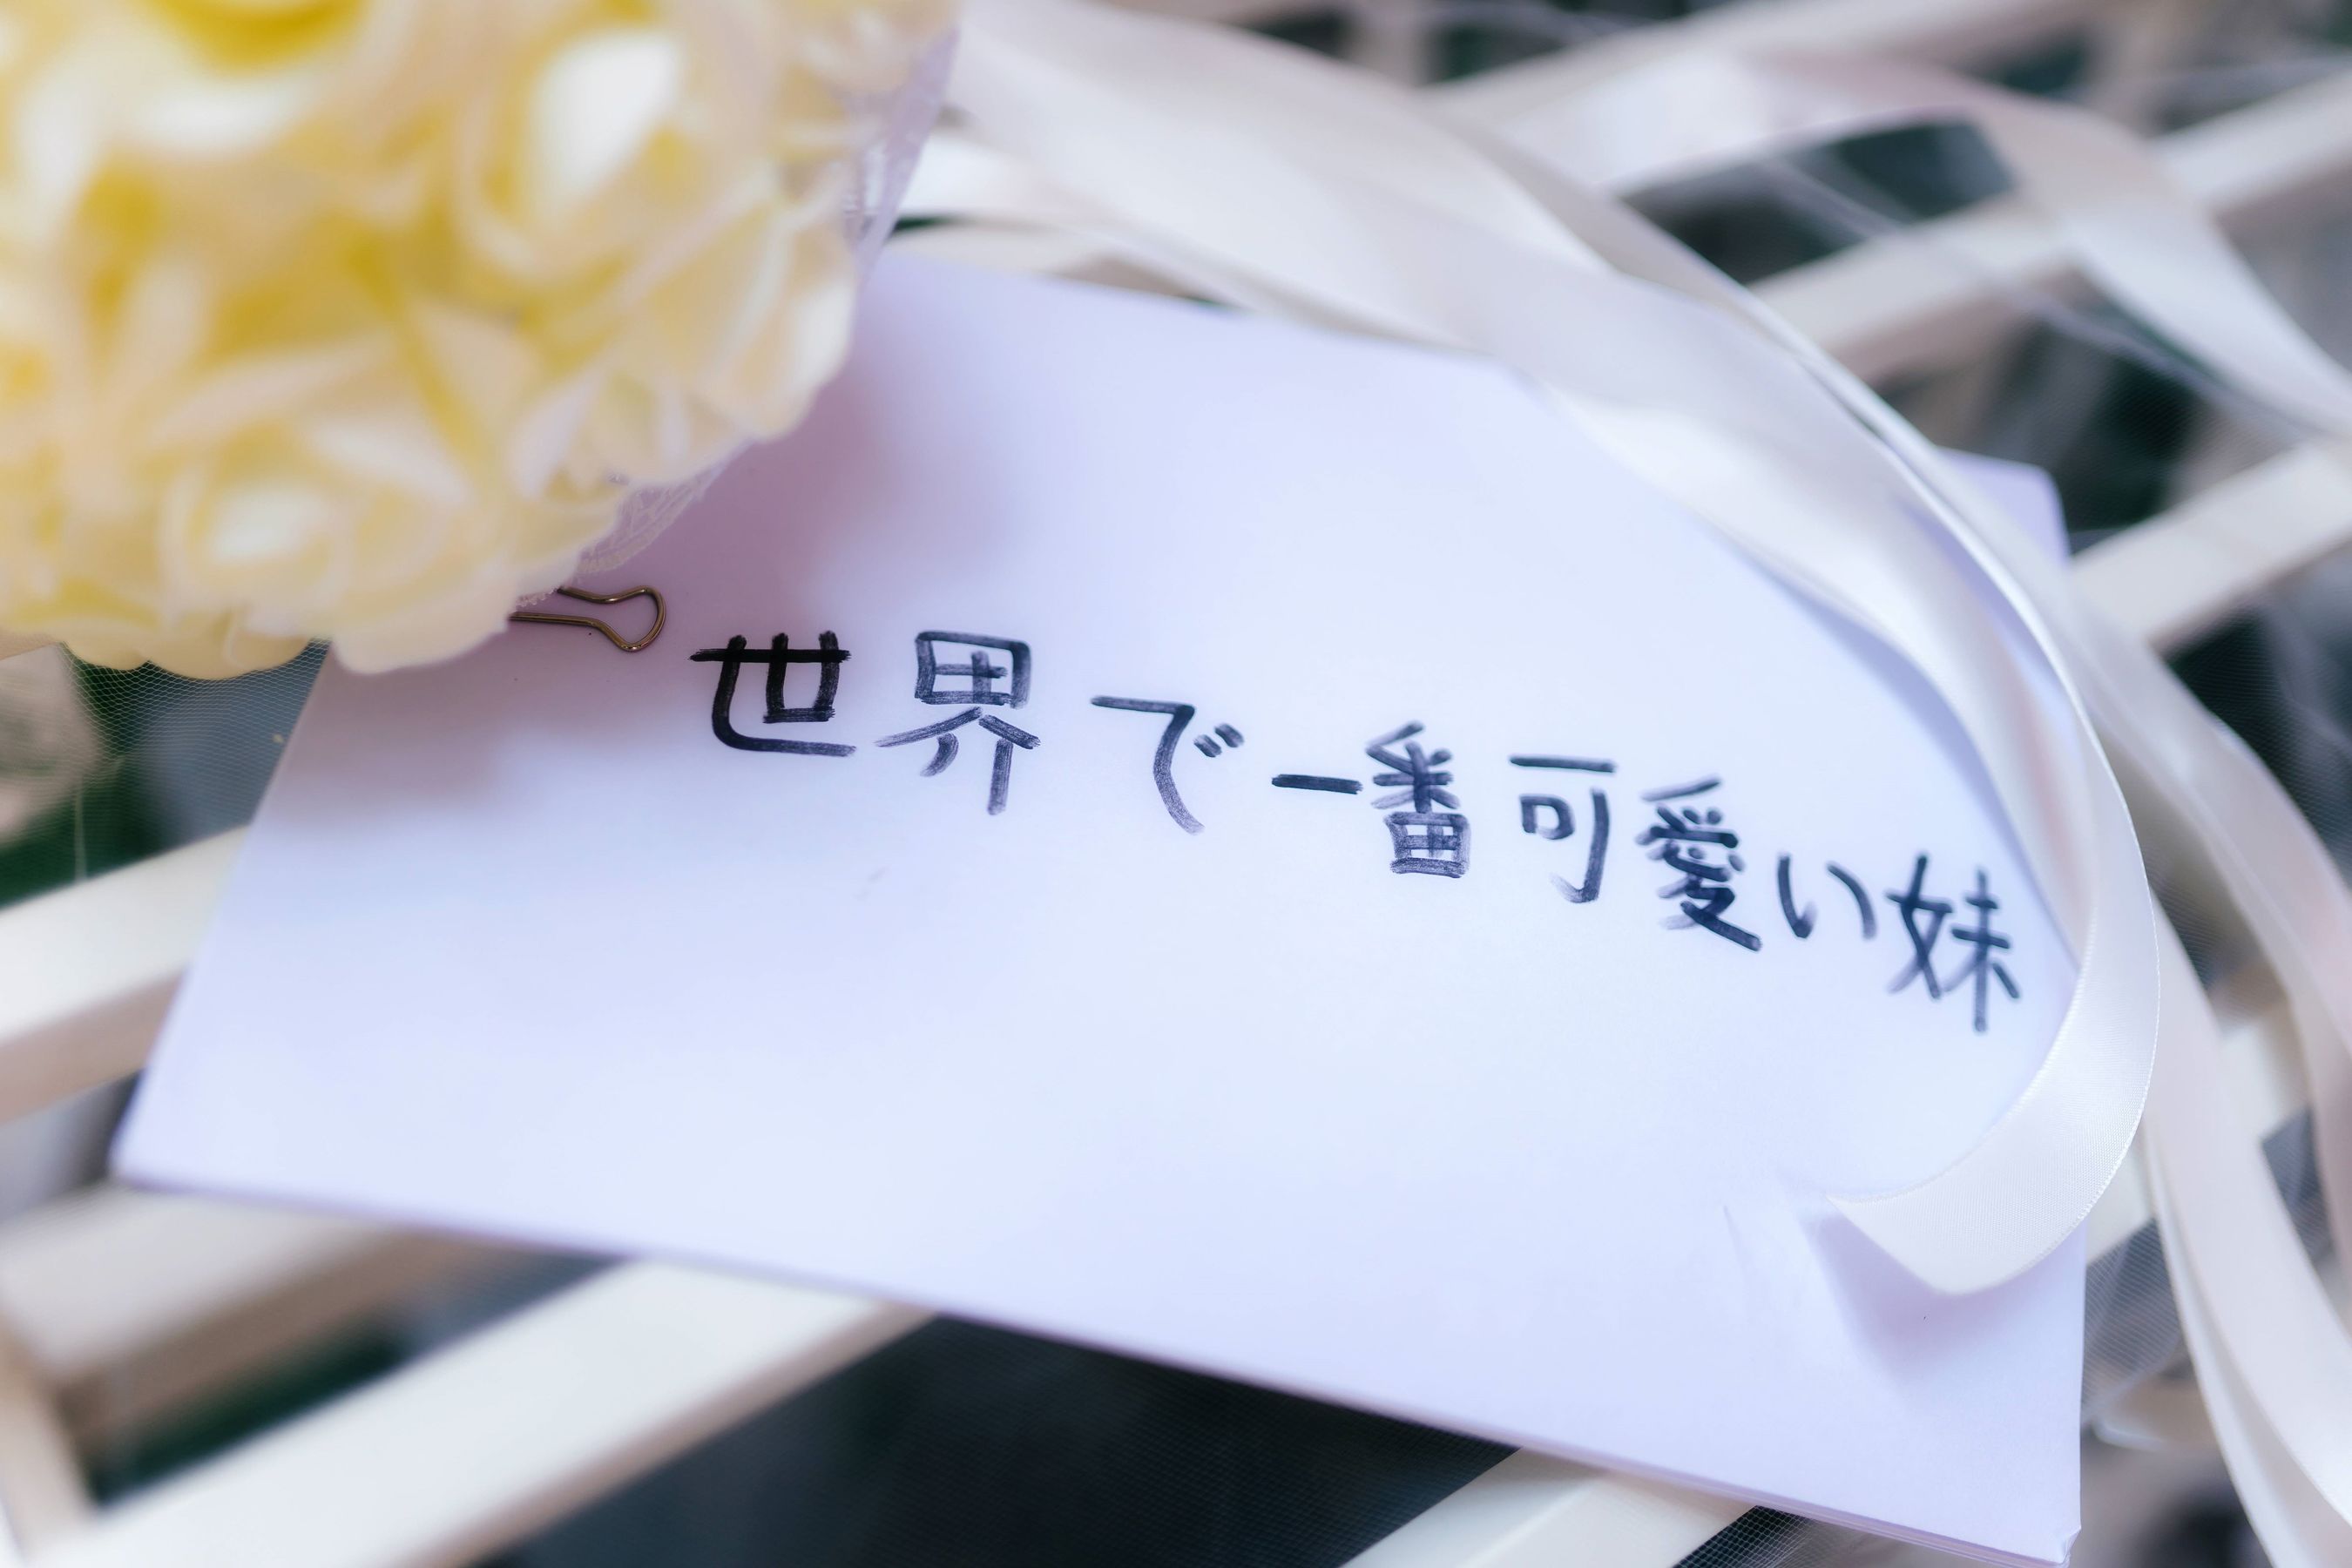 世界で一番可愛い妹